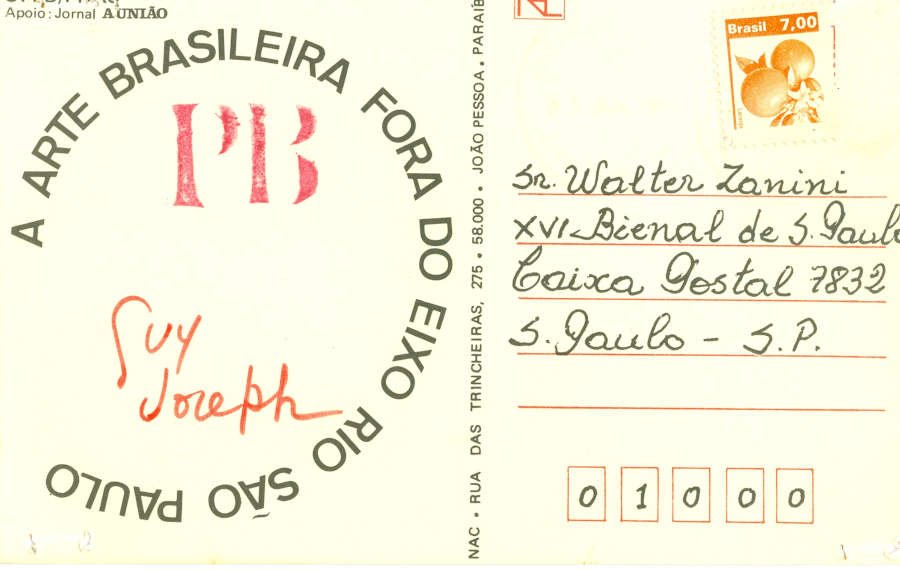 Apoio: Jornal A UNIÃO
A ARTE BRASILEIRA FORA DO EIXO RIO SÃO PAULO
PB
Guy
Joseph
NAC • RUA DAS TRINCHEIRAS, 275 • 58.000 • JOÃO PESSOA • PARAÍB
Brasil 7,00
Sr. Walter Zanini
XVI Bienal de S. Paulo
Caixa Postal 7832
S. Paulo - S.P.
0 1 0 0 0